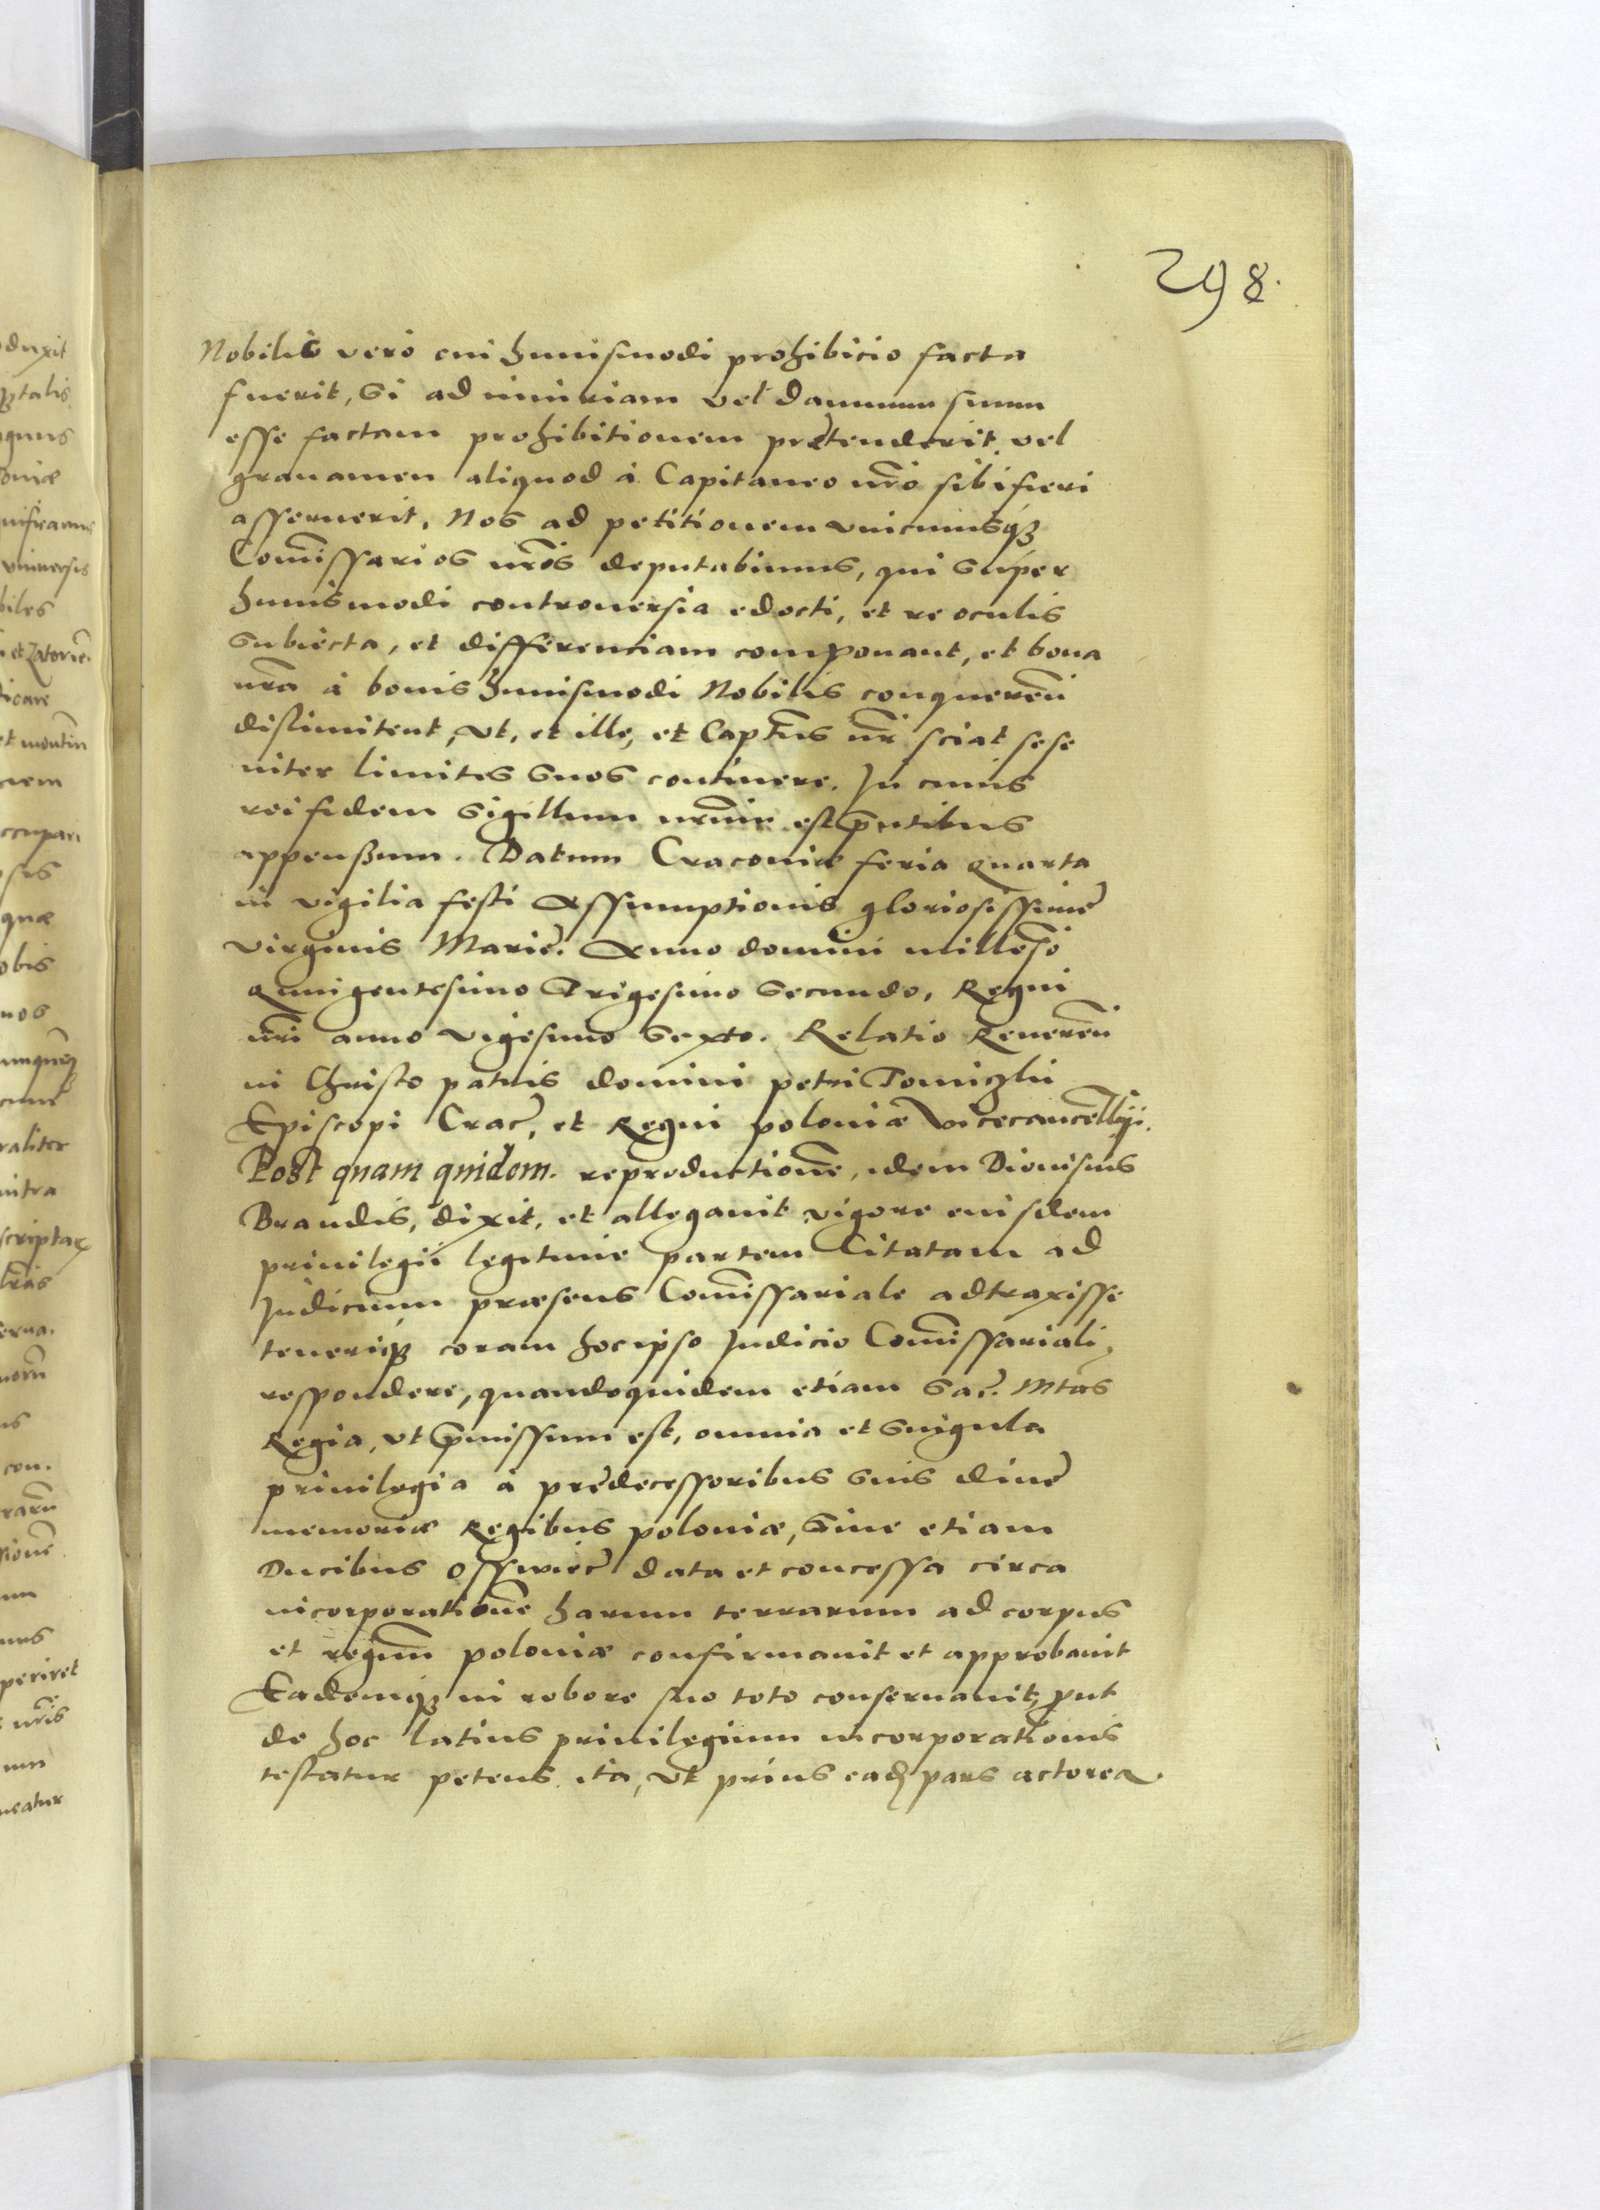 298.
Nobilis vero cui huiusmodi prohibicio facta
fuerit, Si ad iniuriam vel damnum suum
esse factam prohibitionem prętenderit, vel
grauamen aliquod à Capitaneo nr̃o sibi fieri
asseruerit, Nos ad petitionem vniuscuiusqꝫ
Com̃issarios nr̃os deputabimus, qui super
huiusmodi controuersia edocti, et re oculis
subiecta, et differenciam componant, et bona
nr̃a à bonis huiusmodi Nobilis conqueren̄
dislimitent, vt, et ille, et Captn̄s nr̃ sciat sese
inter limites suos continere. In cuius
rei fidem Sigillum nr̃um est pñtibus
appensum. Datum Cracouiæ feria quarta
in vigilia festi Assumptionis gloriosissimę
virginis Marię. Anno domini millesĩo
quingentesimo Trigesimo Secundo, Regni
nr̃i anno vigesimo Sexto. Relatio Reueren̄
in Christo patris domini petri Tomiczki
Episcopi Crac̃, et Regni poloniæ vicecancellr̃ij.
Post quam quidem. reproductionẽ, idem Dionisius
Brandis, dixit, et allegauit vigore eiusdem
priuilegii legitime partem Citatam ad
Judicium præsens Com̃issariale adtraxisse
teneriqꝫ coram hoc ipso Judicio Com̃issariali,
respondere, quandoquidem etiam Sac̃. Mtas
Regia, vt p̃missum est, omnia et singula
priuilegia à prędecessoribus suis diuę
memoriæ Regibus poloniæ, Siue etiam
Ducibus Osswiec̃ data et concessa circa
incorporationẽ harum terrarum ad corpus
et regnũ poloniæ confirmauit et approbauit
Eademqꝫ in robore suo toto conseruauit, ꝓut
de hoc latius priuilegium incorporationis
testatur petens ita, vt prius ead̃ pars actorea.